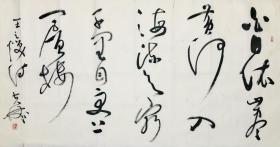 白日依山尽
黄河入
海流欲穷
千里目更上
一层楼
王之涣诗